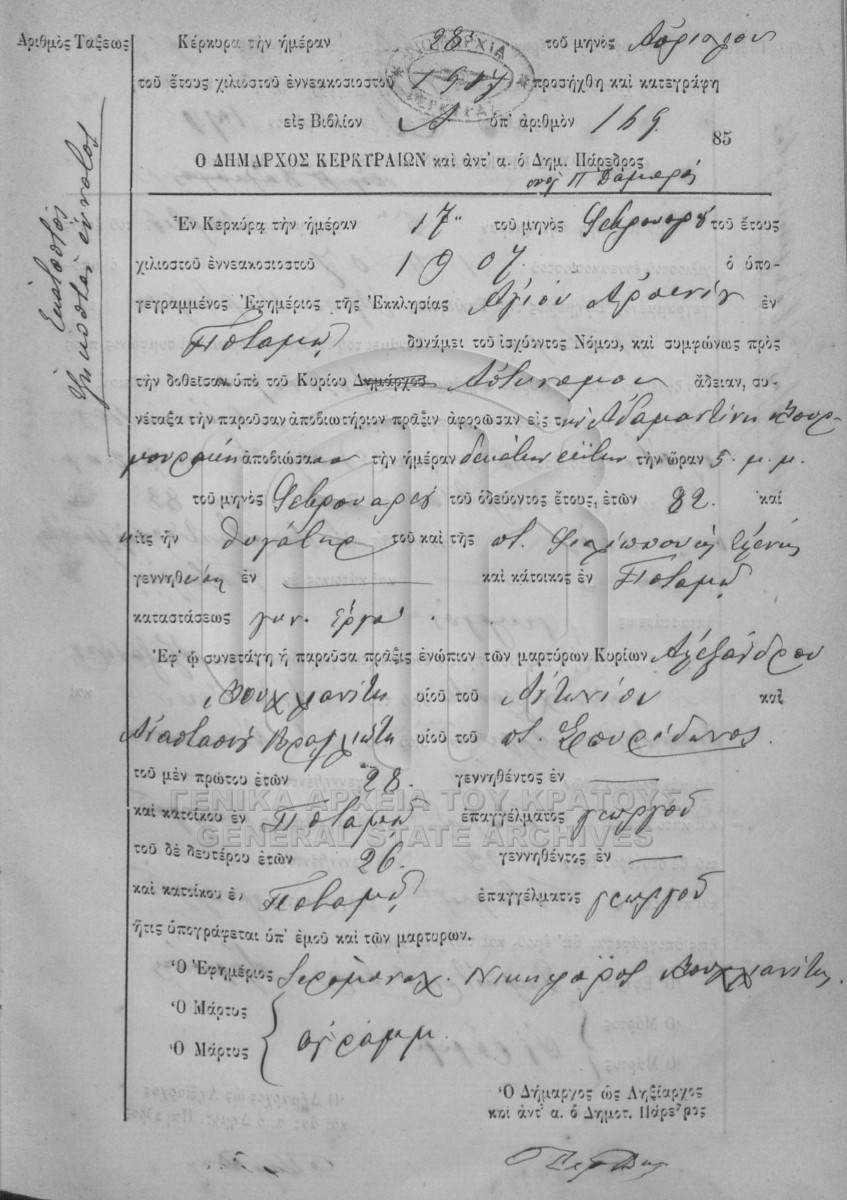 Ἀριθμὸς Τάξεως
Κέρκυρα τὴν ἡμέραν 28 τοῦ μηνὸς Ἀπριλίου
τοῦ ἔτους χιλιοστοῦ ἐννεακοσιοστοῦ 1907 προσήχθη καὶ κατεγράφη
εἰς Βιβλίον Α ὑπ' ἀριθμὸν 169.
85
Ο ΔΗΜΑΡΧΟΣ ΚΕΡΚΥΡΑΙΩΝ καὶ ἀντ' α. ὁ Δημ. Πάρεδρος
Ἑκατοστὸς
ἑξηκοστὸς ἔννατος
Ἐν Κερκύρᾳ τὴν ἡμέραν 17 τοῦ μηνὸς Φεβρουαρίου τοῦ ἔτους
χιλιοστοῦ ἐννεακοσιοστοῦ 1907. ὁ ὑπο-
γεγραμμένος Ἐφημέριος τῆς Ἐκκλησίας Ἁγίου Ἀρσενίου ἐν
Ποταμῷ δυνάμει τοῦ ἰσχύοντος Νόμου, καὶ συμφώνως πρὸς
τὴν δοθεῖσαν ὑπὸ τοῦ Κυρίου Δημάρχου Ἀστυνόμου ἄδειαν, συ-
νέταξα τὴν παροῦσαν ἀποβιωτήριον πρᾶξιν ἀφορῶσαν εἰς τὴν Ἀδαμαντίνην
ἀποβιώσασα τὴν ἡμέραν δεκάτην ἕκτην τὴν ὥραν 5. μ. μ.
τοῦ μηνὸς Φεβρουαρίου τοῦ ὁδεύοντος ἔτους, ἐτῶν 82. καὶ
ἥτις ἦν θυγάτηρ τοῦ καὶ τῆς Ἑλένης
γεννηθείσης ἐν — καὶ κάτοικος ἐν Ποταμῷ
καταστάσεως γυν. ἔργα
Ἐφ' ᾧ συνετάγη ἡ παροῦσα πρᾶξις ἐνώπιον τῶν μαρτύρων Κυρίων Ἀλεξάνδρου
Βουχχανίτη υἱοῦ τοῦ Ἀντωνίου καὶ
Ἀναστασίου Βραγλιώτη υἱοῦ τοῦ ποτ. Σπυρίδωνος.
τοῦ μὲν πρώτου ἐτῶν 28. γεννηθέντος ἐν —
καὶ κατοίκου ἐν Ποταμῷ ἐπαγγέλματος γεωργοῦ
ΓΕΝΙΚΑ ΑΡΧΕΙΑ ΤΟΥ ΚΡΑΤΟΥΣ
GENERAL STATE ARCHIVES
τοῦ δὲ δευτέρου ἐτῶν 26. γεννηθέντος ἐν —
καὶ κατοίκου ἐν Ποταμῷ ἐπαγγέλματος γεωργοῦ
ἥτις ὑπογράφεται ὑπ' ἐμοῦ καὶ τῶν μαρτύρων.
Ὁ Ἐφημέριος Ἱερομόναχ. Νικηφόρος Βουχχανίτης.
Ὁ Μάρτυς
Ὁ Μάρτυς ἀγράμμ.
Ὁ Δήμαρχος ὡς Ληξίαρχος
καὶ ἀντ' α. ὁ Δημοτ. Πάρεδρος